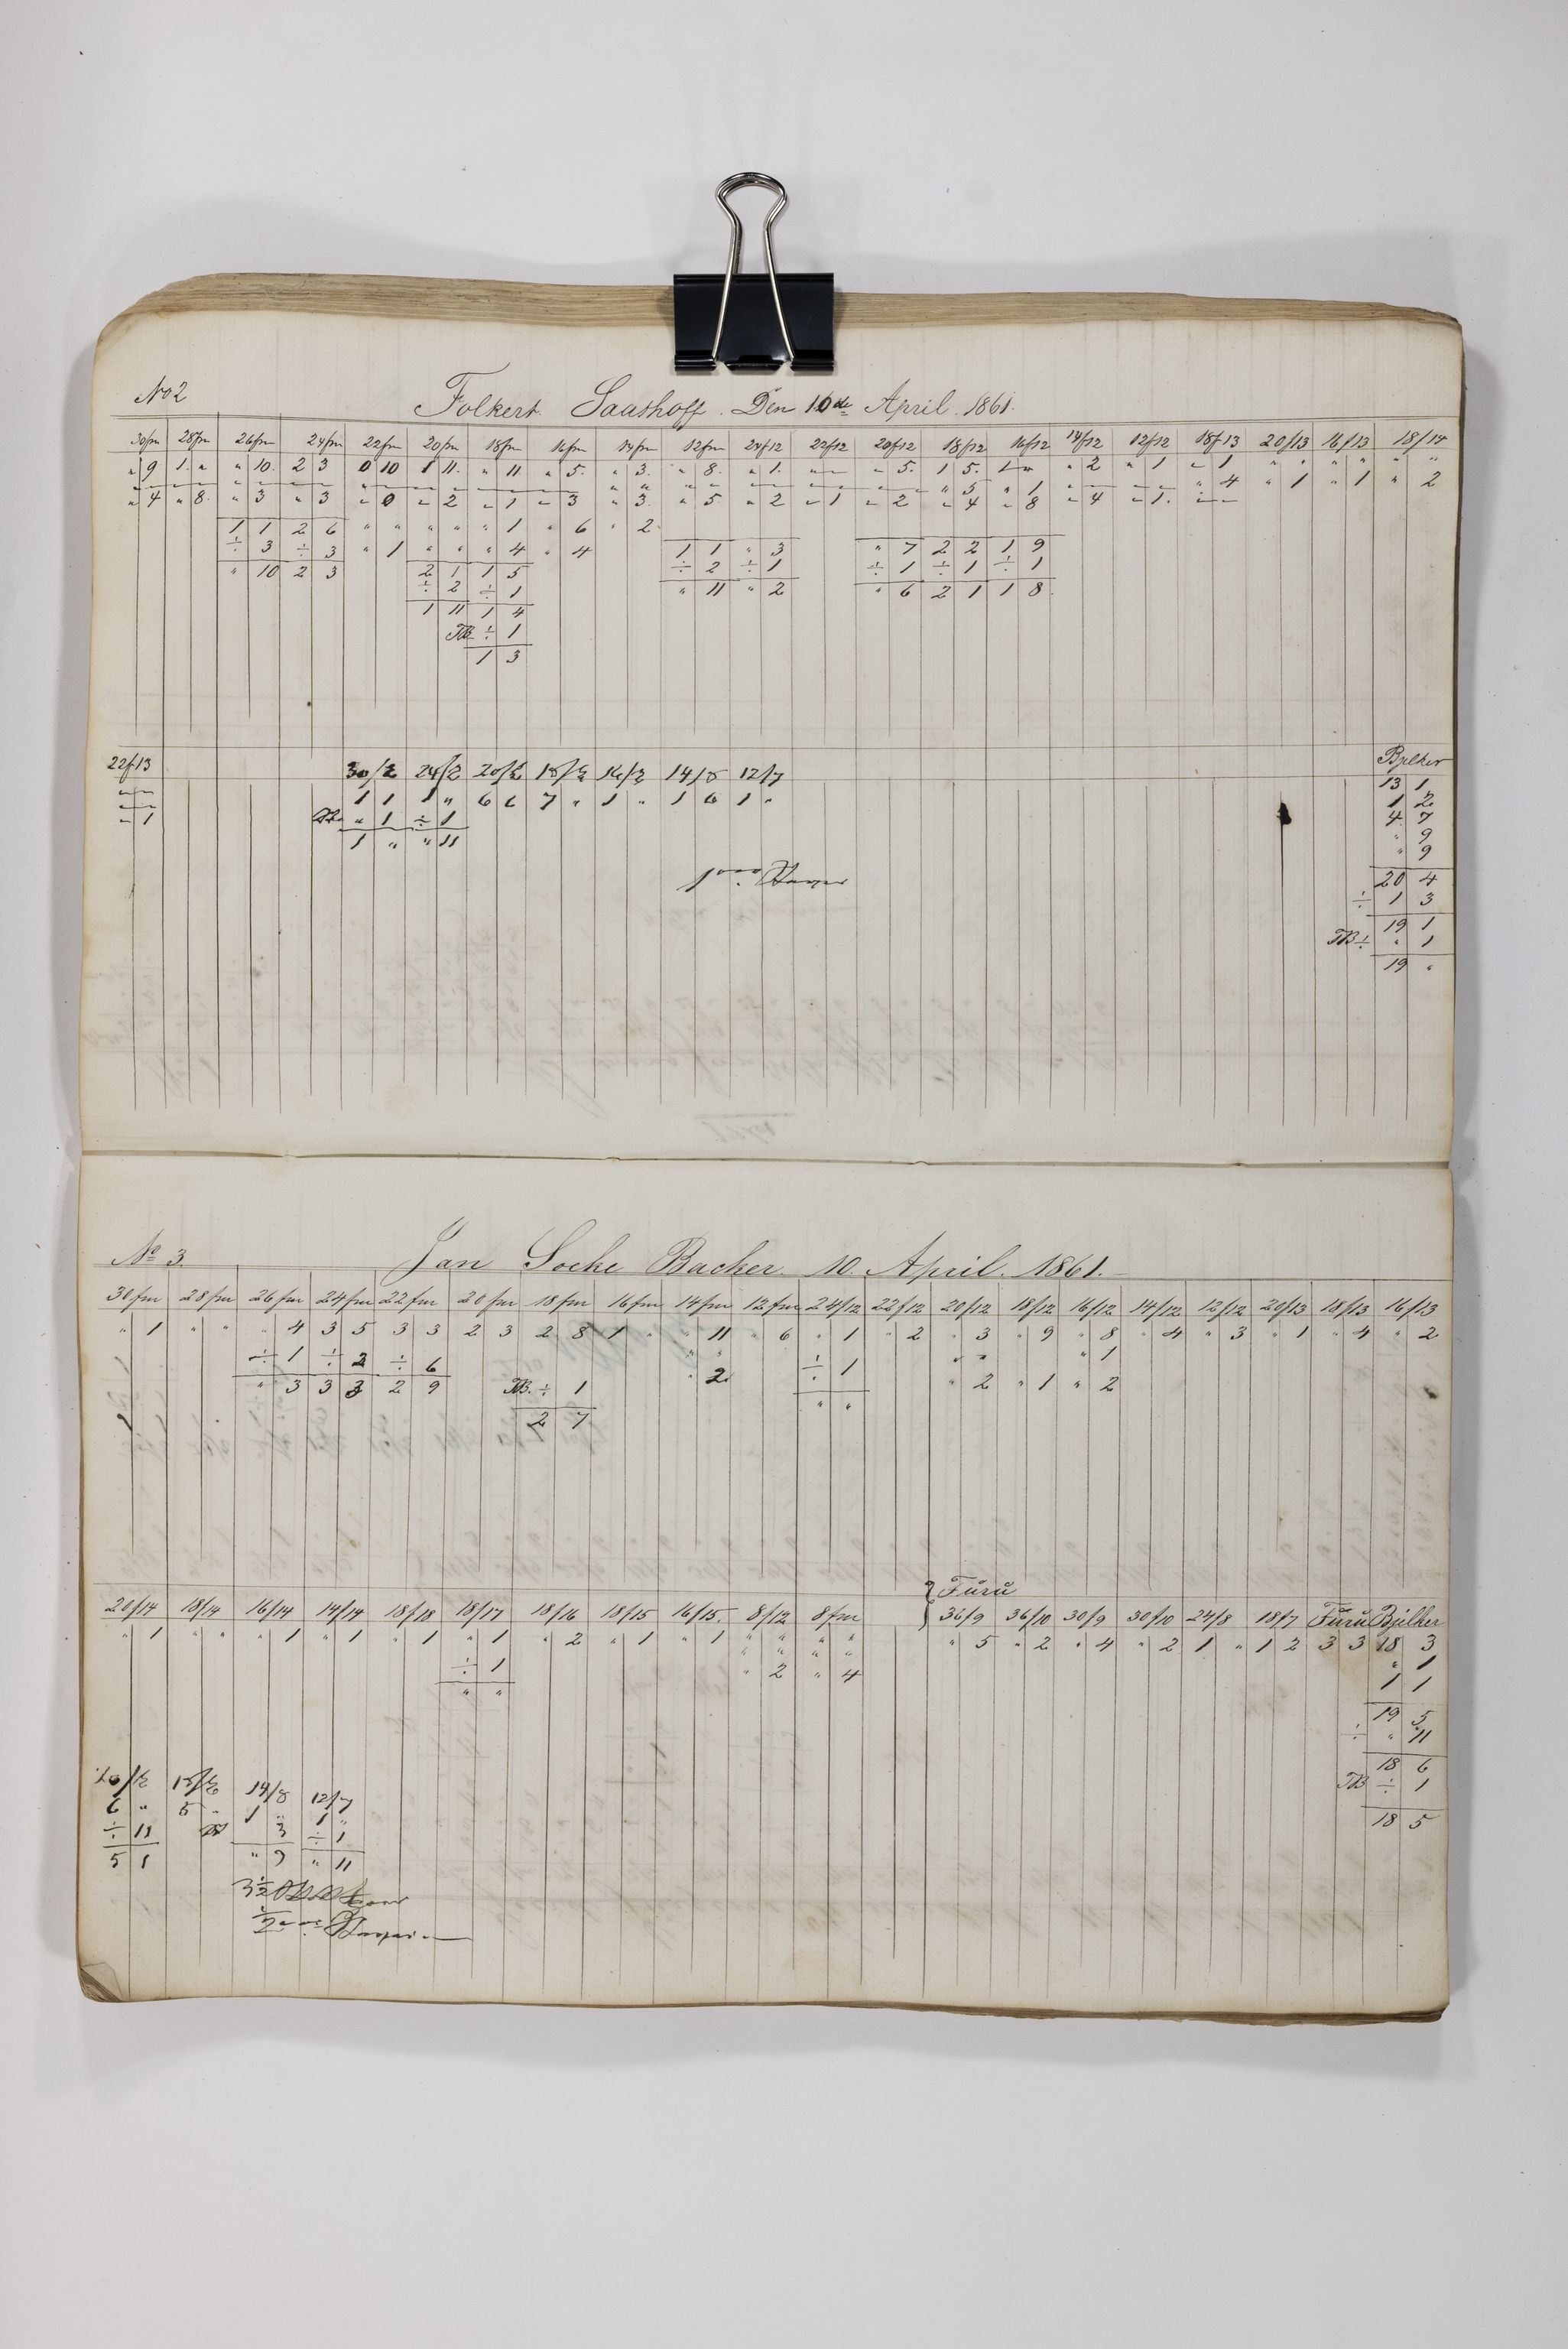 No 2 Folkert Saashoff. Den 10de April. 1861.
30fm 28fm 26fm 24fm 22fm 20fm 18fm 16fm 14fm 12fm 24/12 22/12 20/12 18/12 16/12 14/12 12/12 18/13 20/13 16/13 18/14
" 9 1. " " 10. 2 3 0 10 1 11. " 11 " 5. " 3. " 8. " 1. " " " 5. 1 5. 1 " " 2 " 1 " 1 " " " " " "
" 5 " 1 " 4 " 1 " 1 " 2
" 4 " 8. " 3 " 3 " 0 " 2 " 1 " 3 " 3. " 5 " 2 " 1 " 2 " 4 " 8 " 4 " 1. " "
1 1 2 6 " " " " " 1 " 6 " 2
÷ 3 ÷ 3 " 1 " " " 4 " 4 1 1 " 3 " 7 2 2 1 9
" 10 2 3 2 1 1 5 ÷ 2 ÷ 1 ÷ 1 ÷ 1 ÷ 1
÷ 2 ÷ 1 " 11 " 2 " 6 2 1 1 8.
1 11 1 4
TB ÷ 1
1 3
22/13 30/2 24/2 20/2 18/2 16/2 14/8 12/7 Bjelker
" " 1 1 1 " 6 6 7 " 1 " 1 6 1 " 13 1
" " " 1 ÷ 1 1 2
" 1 1 " " 11 4 7
" 9
" 9
20 4
÷ 1 3
19 1
TB ÷ " 1
19 "
No 3. Jan Socke Backer. 10. April. 1861.
30fm 28fm 26fm 24fm 22fm 20fm 18fm 16fm 14fm 12fm 24/12 22/12 20/12 18/12 16/12 14/12 12/12 20/13 18/13 16/13
" 1 " " " 4 3 5 3 3 2 3 2 8 1 " " 11 " 6 " 1 " 2 " 3 " 9 " 8 " 4 " 3 " 1 " 4 " 2
÷ 1 ÷ 2 ÷ 6 " " ÷ 1 " " " 1
" 3 3 3 2 9 TB. ÷ 1 " 2 " " " 2 " 1 " 2
2 7
Furu
20/14 18/14 16/14 14/14 18/18 18/17 18/16 18/15 16/15. 8/12 8fm 36/9 36/10 30/9 30/10 24/8 18/7 Furu Bjelker
" 1 " " " 1 " 1 " 1 " 1 " 2 " 1 " 1 " " " " " 5 " 2 " 4 " 2 1 " 1 2 3 3 18 3
÷ 1 " " " " " 1
" " " 2 " 4 1 1
19 5
÷ " 11
18 6
TB ÷ 1
18 5
20/2 18/2 14/8 12/7
6 " 5 " 1 " 1 "
÷ 11 3 ÷ 1
5 1 " 9 " 11